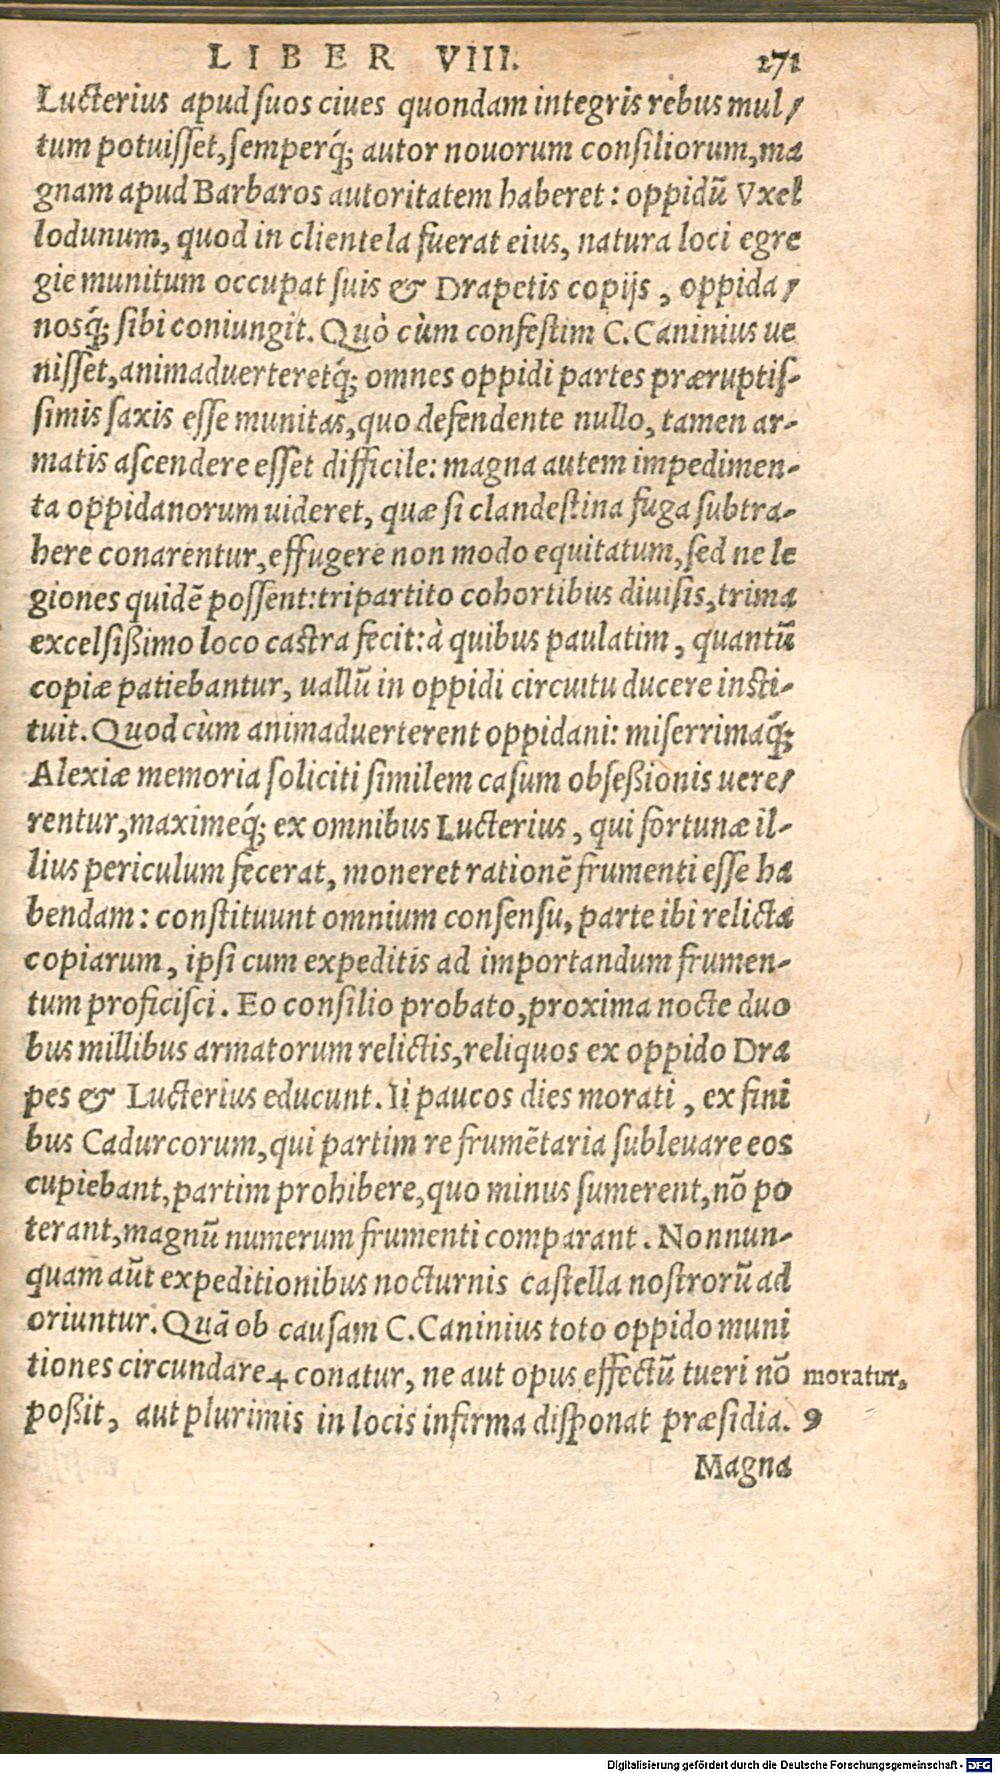 LIBER VIII. 271
Lucterius apud suos ciues quondam integris rebus mul/
tum potuisset, semperq́; autor nouorum consiliorum, ma
gnam apud Barbaros autoritatem haberet: oppidũ Vxel
lodunum, quod in clientela fuerat eius, natura loci egre
gie munitum occupat suis & Drapetis copijs, oppida/
nosq́; sibi coniungit. Quò cùm confestim C. Caninius ue
nisset, animaduerteretq́; omnes oppidi partes præruptis-
simis saxis esse munitas, quo defendente nullo, tamen ar-
matis ascendere esset difficile: magna autem impedimen-
ta oppidanorum uideret, quæ si clandestina fuga subtra-
here conarentur, effugere non modo equitatum, sed ne le
giones quidẽ possent: tripartito cohortibus diuisis, trima
excelsißimo loco castra fecit: à quibus paulatim, quantũ
copiæ patiebantur, uallũ in oppidi circuitu ducere insti-
tuit. Quod cùm animaduerterent oppidani: miserrimaq́;
Alexiæ memoria soliciti similem casum obseßionis uere/
rentur, maximeq́; ex omnibus Lucterius, qui fortunæ il-
lius periculum fecerat, moneret rationẽ frumenti esse ha
bendam: constituunt omnium consensu, parte ibi relicta
copiarum, ipsi cum expeditis ad importandum frumen-
tum proficisci. Eo consilio probato, proxima nocte duo
bus millibus armatorum relictis, reliquos ex oppido Dra
pes & Lucterius educunt. Ii paucos dies morati, ex fini
bus Cadurcorum, qui partim re frumẽtaria subleuare eos
cupiebant, partim prohibere, quo minus sumerent, nõ po
terant, magnũ numerum frumenti comparant. Nonnun-
quam aũt expeditionibus nocturnis castella nostrorũ ad
oriuntur. Quã ob causam C. Caninius toto oppido muni
tiones circundare + conatur, ne aut opus effectũ tueri nõ moratur,
poßit, aut plurimis in locis infirma disponat præsidia. 9
Magna
Digitalisierung gefördert durch die Deutsche Forschungsgemeinschaft - DFG